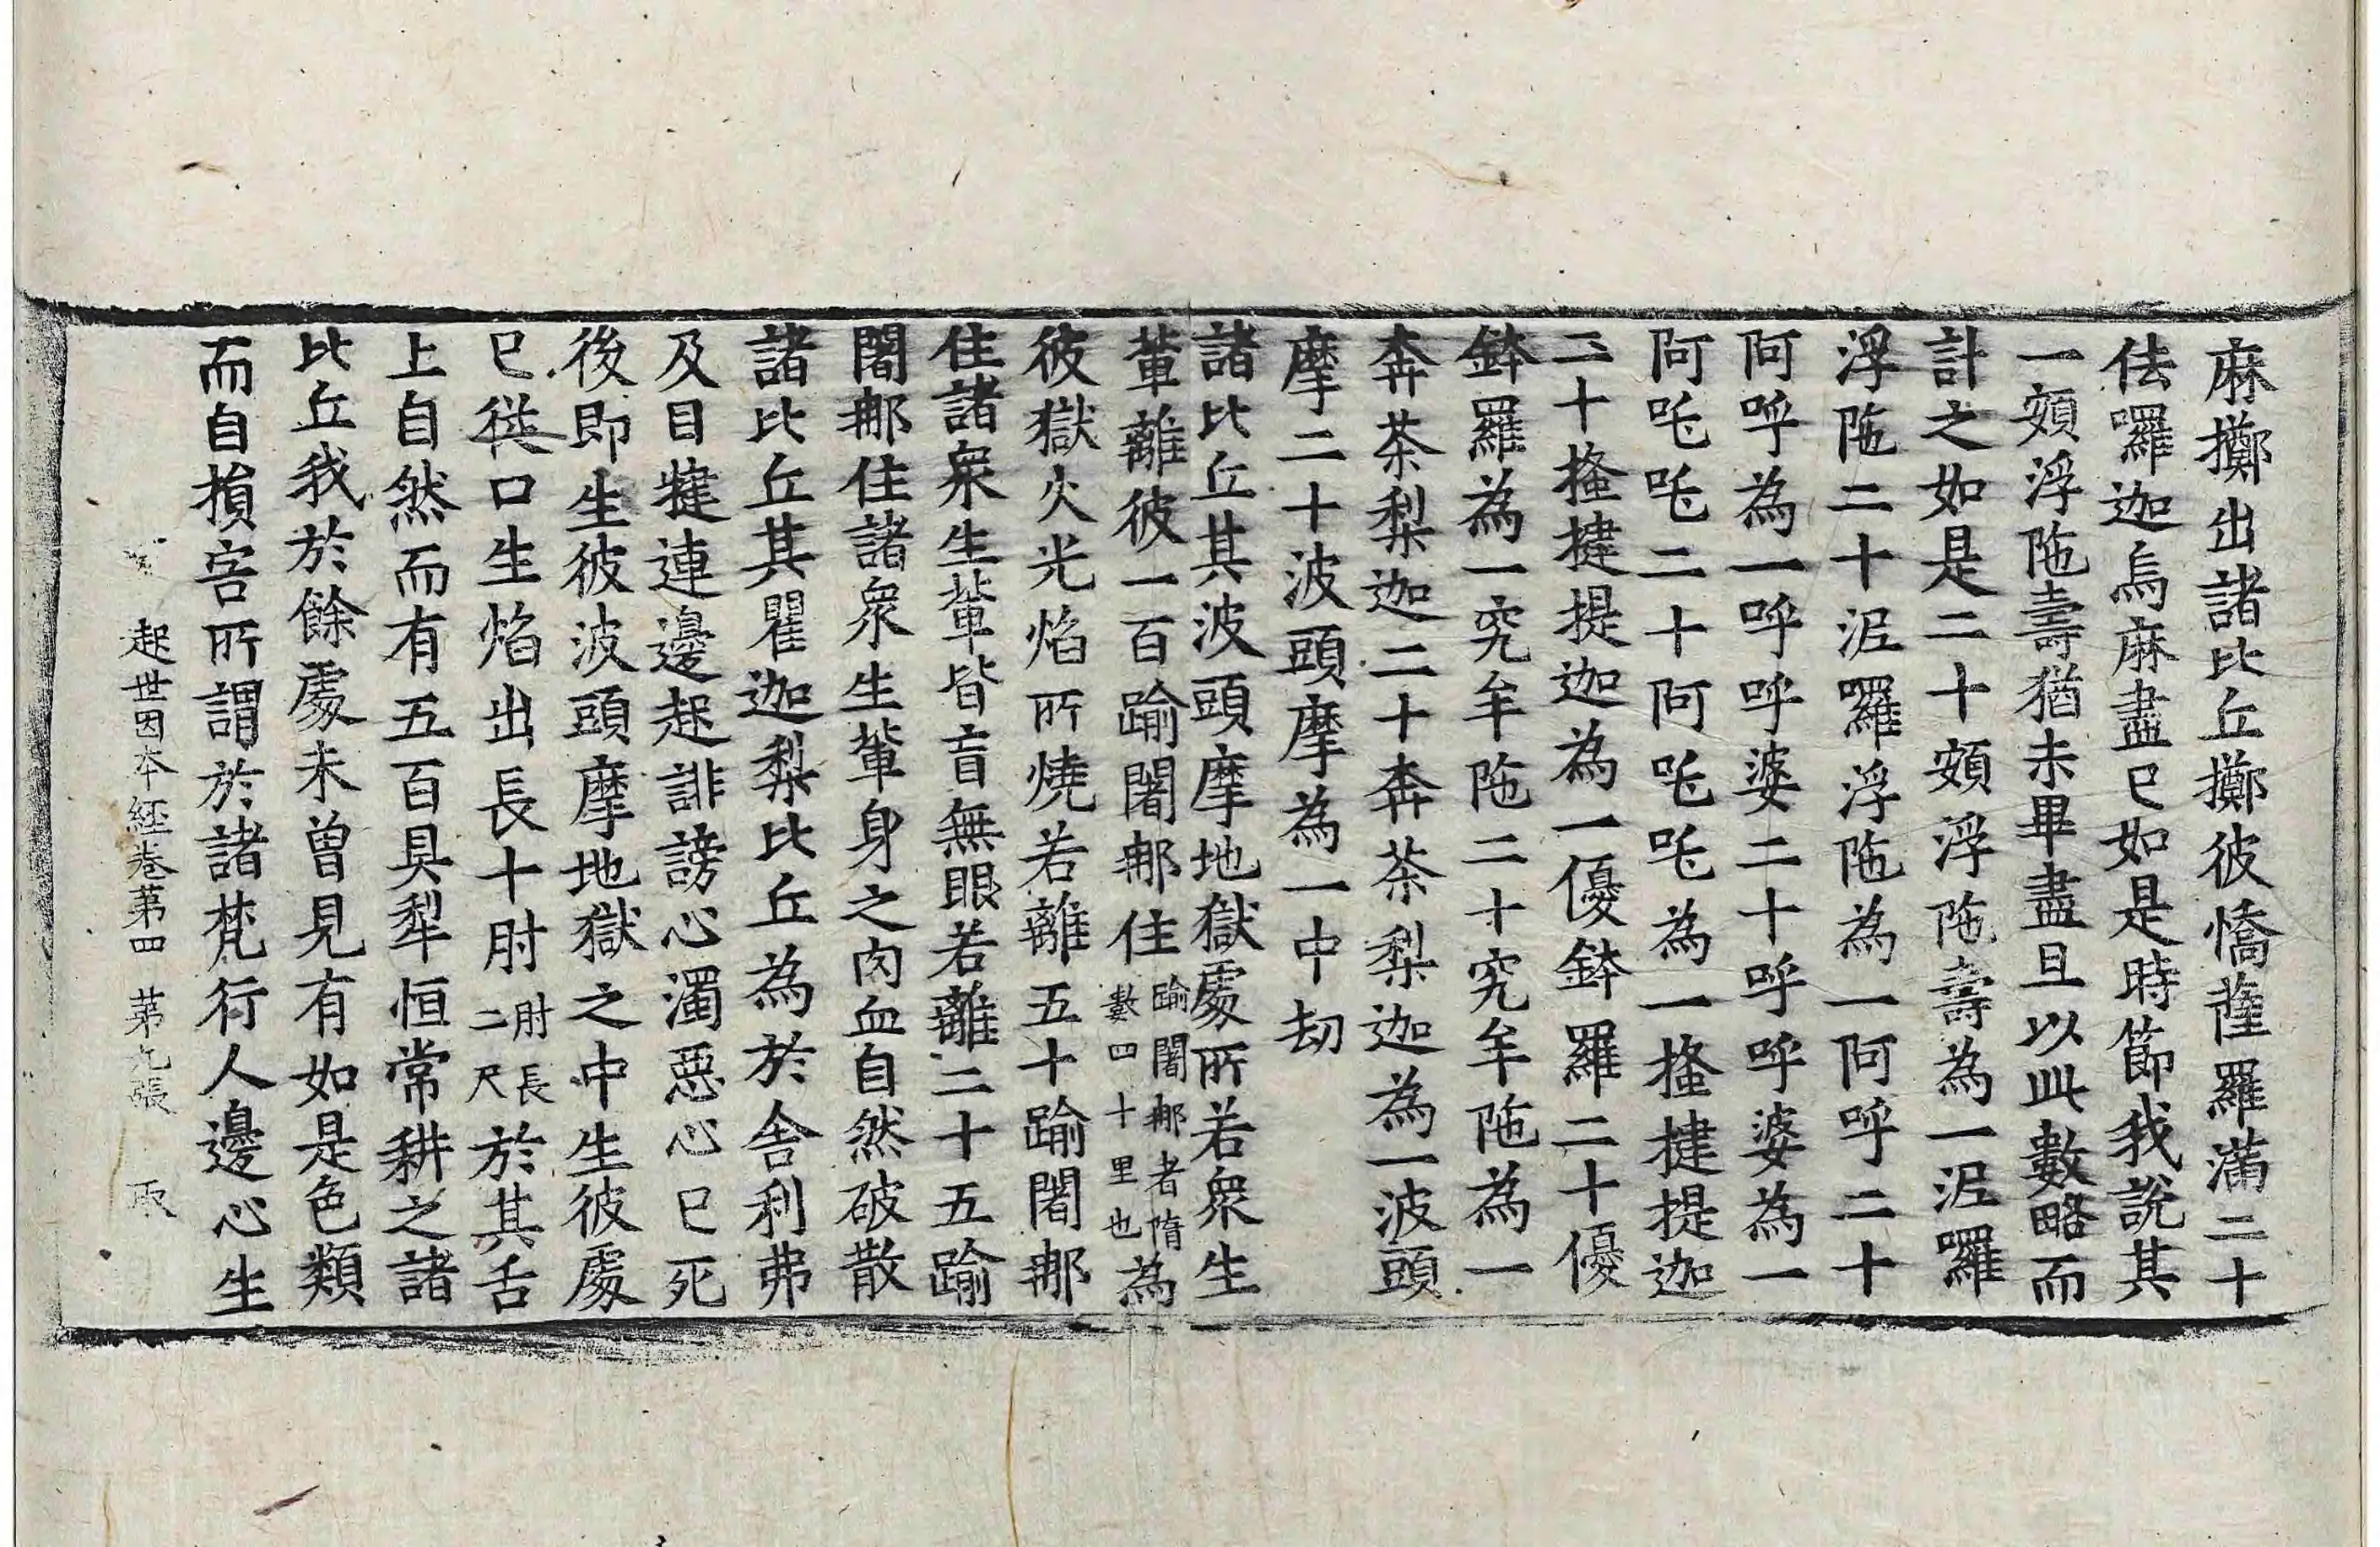 麻擲出諸比丘擲彼憍薩羅滿二十
佉囉迦烏麻盡已如是時節我說其
一頞浮陁壽猶未畢盡且以此數略而
計之如是二十頞浮陁壽為一泥囉
浮陁二十泥囉浮陁為一阿呼二十
阿呼為一呼呼婆二十呼呼婆為一
阿吒吒二十阿吒吒為一搔揵提迦
二十搔揵提迦為一優鉢羅二十優
鉢羅為一究牟陁二十究牟陁為一
奔茶梨迦二十奔茶梨迦為一波頭
摩二十波頭摩為一中劫
諸比丘其波頭摩地獄處所若衆生
輩離彼一百踰闍那住踰闍那者隋數四十里也為
彼獄火光焰所燒若離五十踰闍那
住諸衆生輩皆盲無眼若離二十五踰
闍那住諸衆生輩身之肉血自然破散
諸比丘其瞿迦梨比丘為於舍利弗
及目揵連邊起誹謗心濁惡心已死
後即生彼波頭摩地獄之中生彼處
已從口生焰出長十肘肘長二尺於其舌
上自然而有五百具犁恒常耕之諸
比丘我於餘處未曾見有如是色類
而自損害所謂於諸梵行人邊心生
起世因本經卷第四 第九張